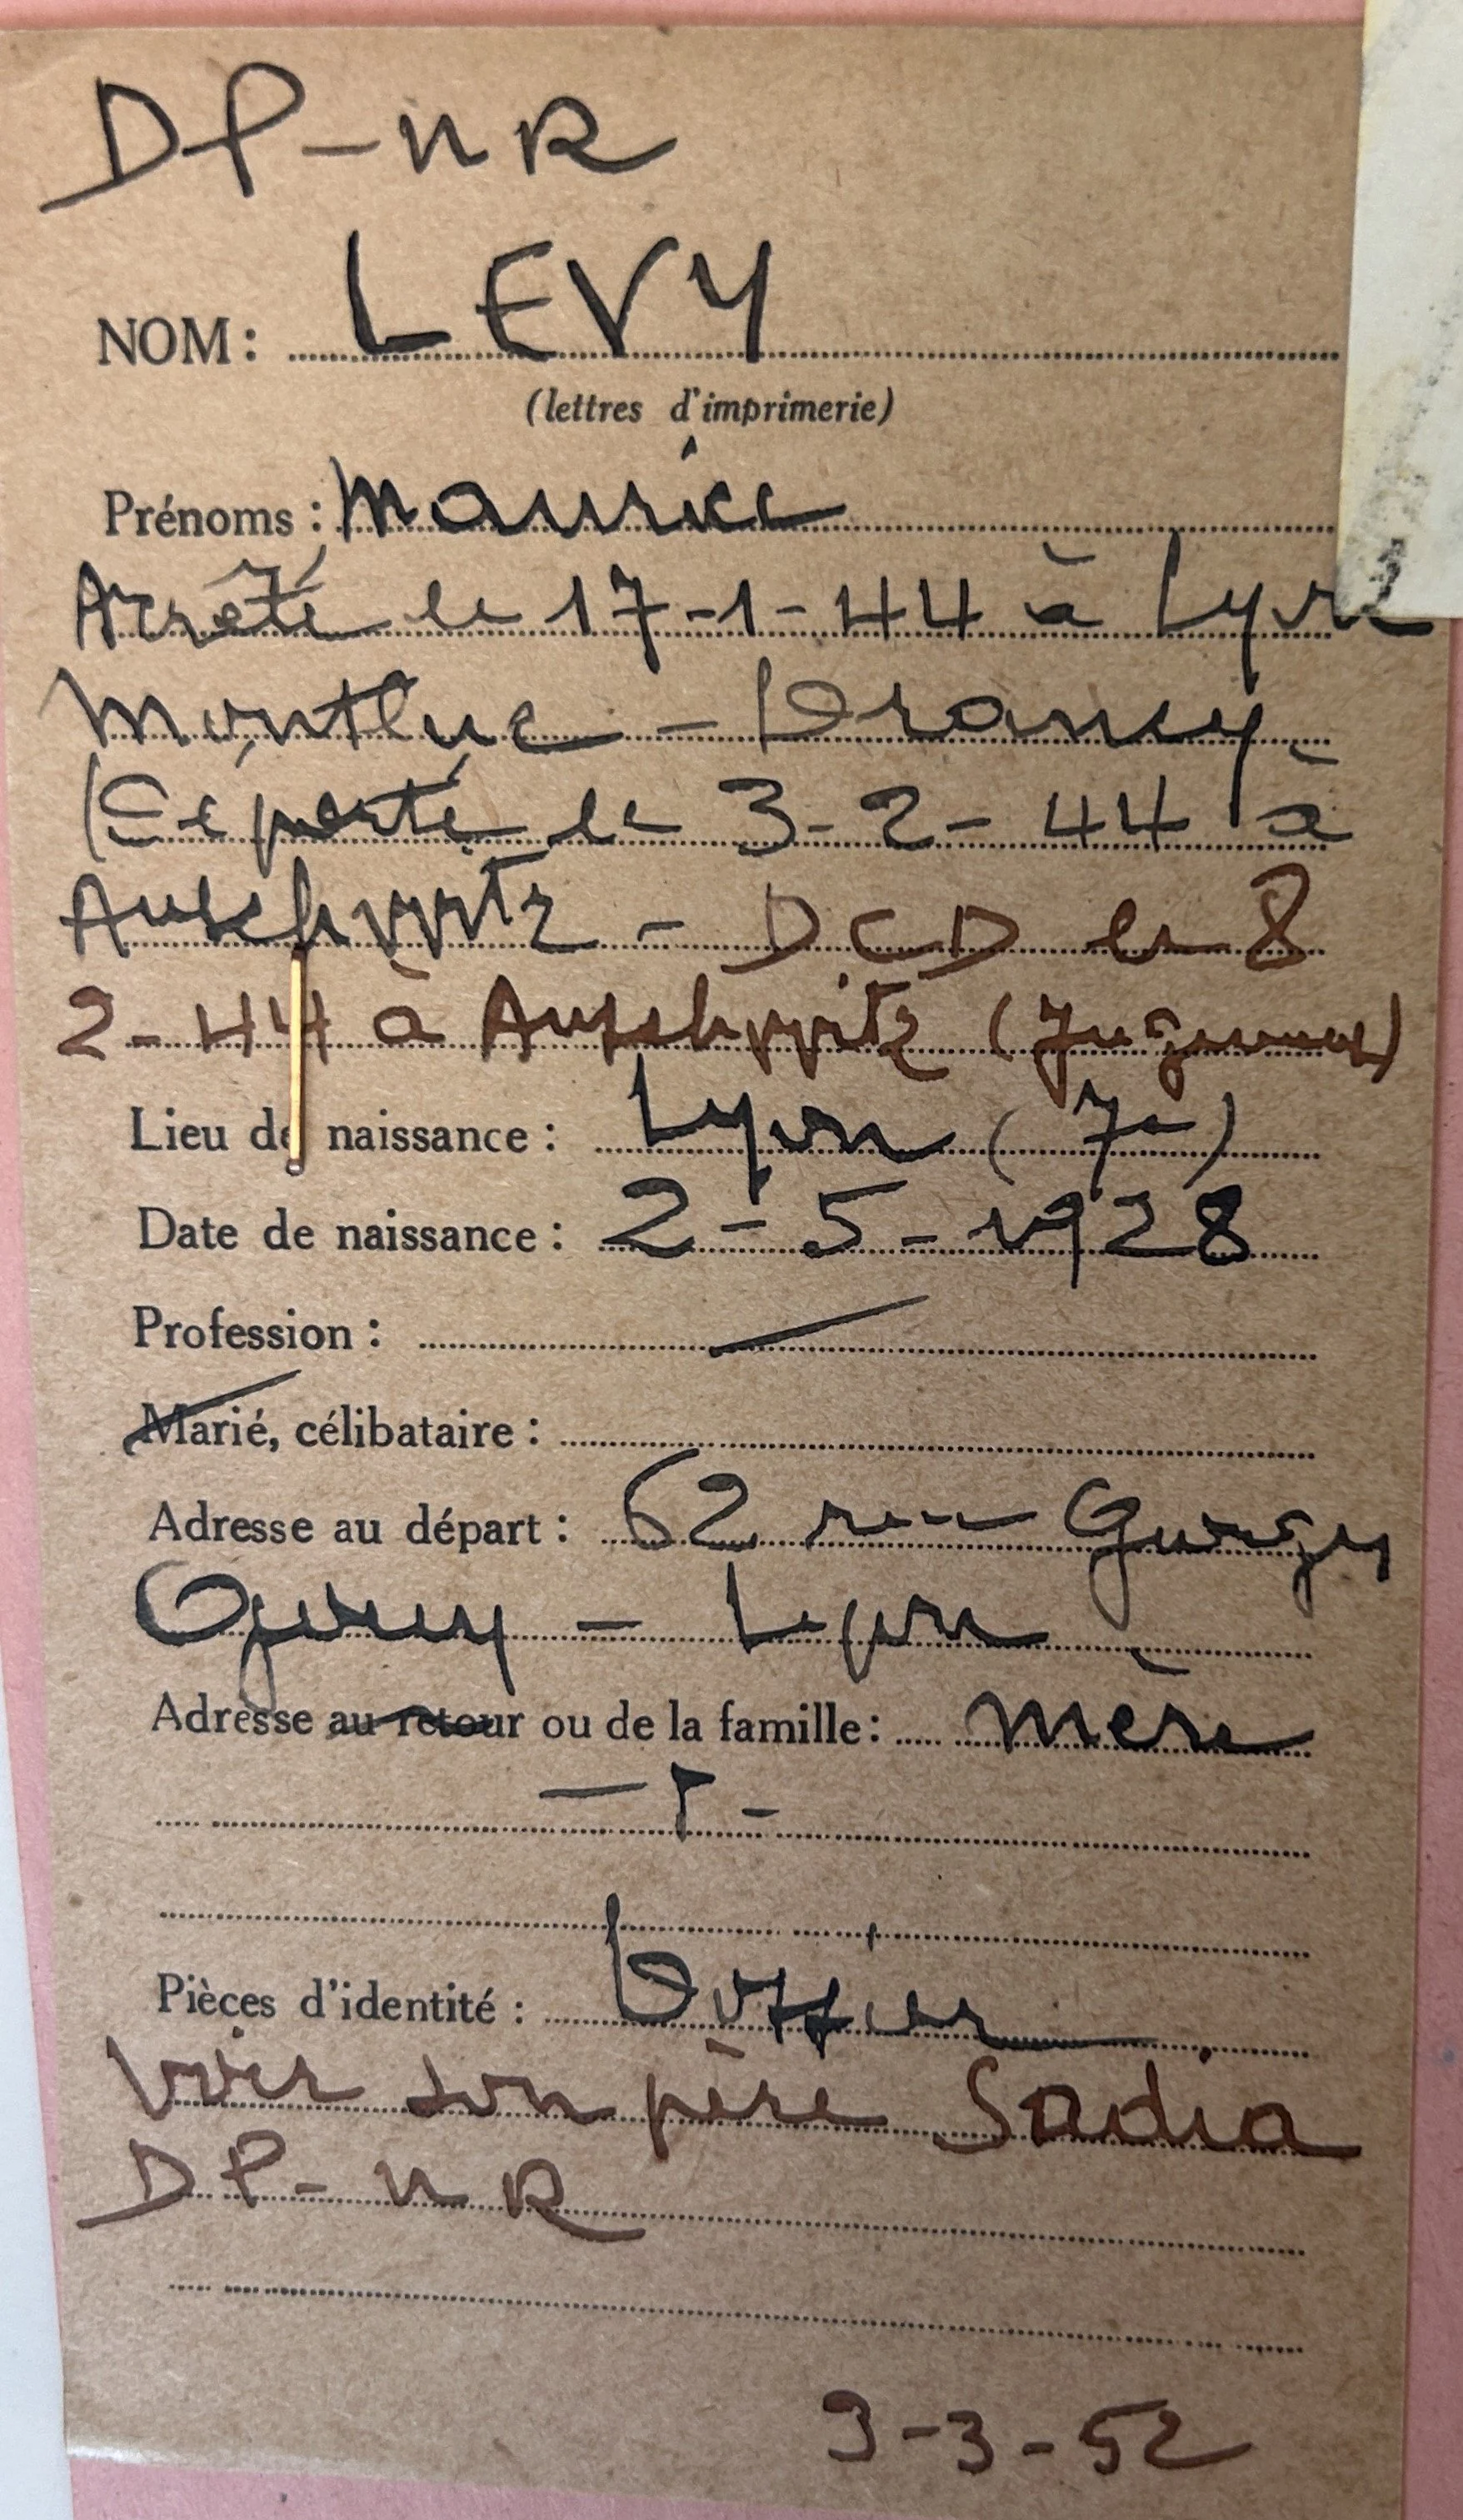 DP-NR
NOM: LEVY
(lettres d'imprimerie)
Prénoms: Maurice
Arrêté le 17-1-44 à Lyon
Montluc - Drancy
Déporté le 3-2-44 à
Auschwitz - DCD le 8
2-44 à Auschwitz (Jugement)
Lieu de naissance: Lyon (7e)
Date de naissance: 2-5-1928
Profession:
Marié, célibataire:
Adresse au départ: 62 rue
- Lyon
Adresse au retour ou de la famille: Mère
Pièces d'identité: Dossier
Voir son père Sadia
DP-NR
3-3-52